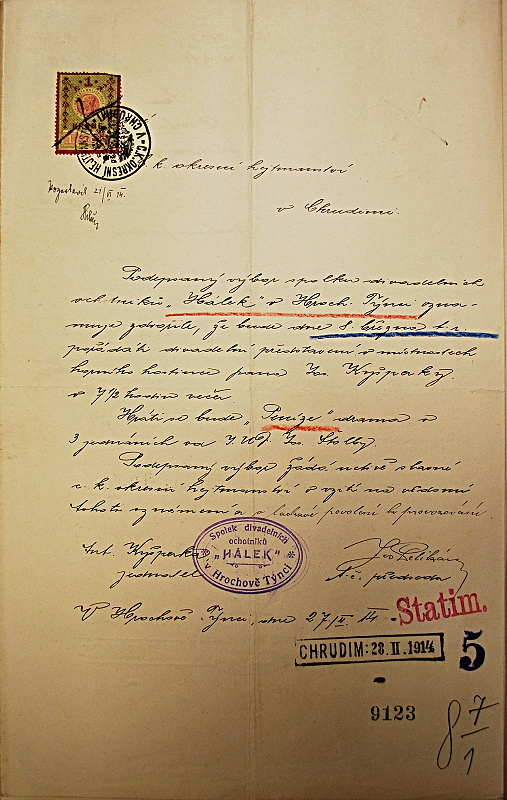 V CHRUDIMI
C.K. OKRESNÍ HEJTMANSTVÍ
k. okresní hejtmanství
v Chrudimi.
Podepsaný výbor spolku divadelních
ochotníků „Hálek" v Hroch. Týnci ozna-
muje zdvořile, že bude dne 8. března t. r.
pořádati divadelní představení v místnostech
horního hostince pana Jos. Kyšperky.
v 7 1/2 hodin večer.
Hráti se bude „Peníze" drama o
3 jednáních od J. Stolby.
Podepsaný výbor žádá uctivě slavné
c. k. okresní hejtmanství o vzetí na vědomí
tohoto oznámení a o laskavé povolení k provozování.
Ant. Kyšperka
jednatel
Spolek divadelních
ochotníků
„HÁLEK"
v Hrochově Týnci
t. č. předseda
V Hrochově Týnci, dne 27/II. 14.
Statim.
CHRUDIM: 28. II. 1914
5
9123
8 7/1